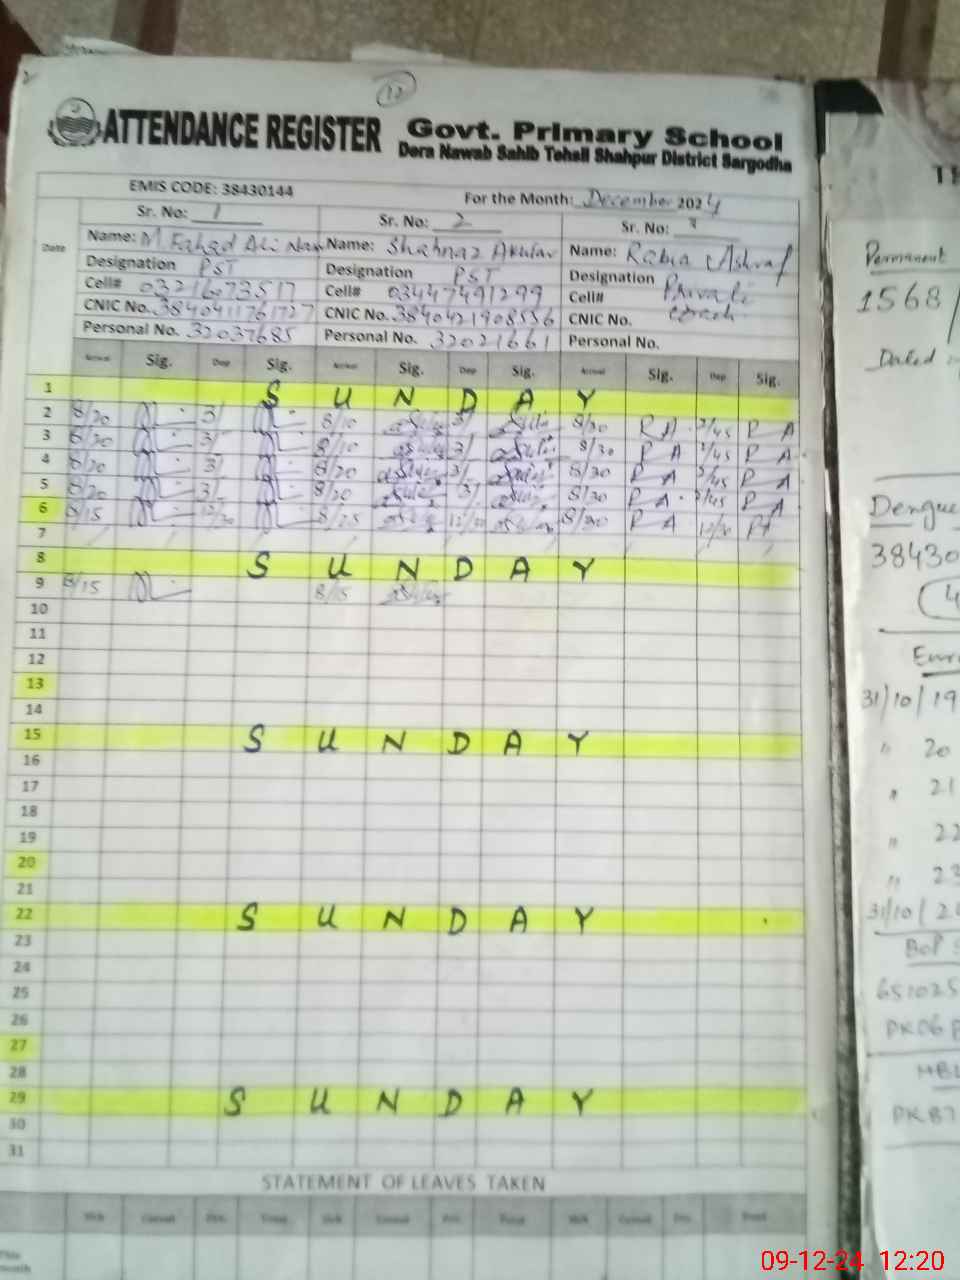 12
ATTENDANCE REGISTER Govt. Primary School
Dera Nawab Sahib Tehsil Shahpur District Sargodha
EMIS CODE: 38430144 For the Month: December 2024
Sr. No: 1 Sr. No: 2 Sr. No: 3
Name: M. Fahad Ali Name: Shahnaz Akhtar Name: Rabia Ashraf
Designation PST Designation PST Designation Private
Cell# 03216073517 Cell# 03447491299 Cell# coach
CNIC No. 3840411761727 CNIC No. 3840421908556 CNIC No.
Personal No. 32037685 Personal No. 32021661 Personal No.
Date Arrival Sig. Dep Sig. Arrival Sig. Dep Sig. Arrival Sig. Dep Sig.
1 S U N D A Y
2 8/20 3/ 8/10 3/ 8/30 RA 2/45 RA
3 8/20 3/ 8/10 3/ 8/30 RA 2/45 RA
4 8/20 3/ 8/20 3/ 8/30 RA 2/45 RA
5 8/20 3/ 8/20 3/ 8/30 RA 2/45 RA
6 8/15 12/30 8/25 12/30 8/30 RA 12/30 RA
7
8 S U N D A Y
9 8/15 8/15
10
11
12
13
14
15 S U N D A Y
16
17
18
19
20
21
22 S U N D A Y
23
24
25
26
27
28
29 S U N D A Y
30
31
STATEMENT OF LEAVES TAKEN
Permanent
1568/
Dated
Dengue
38430
31/10/19
" 20
" 21
" 22
" 23
31/10/
BOP
651025
PK06
HBL
PK87
09-12-24 12:20